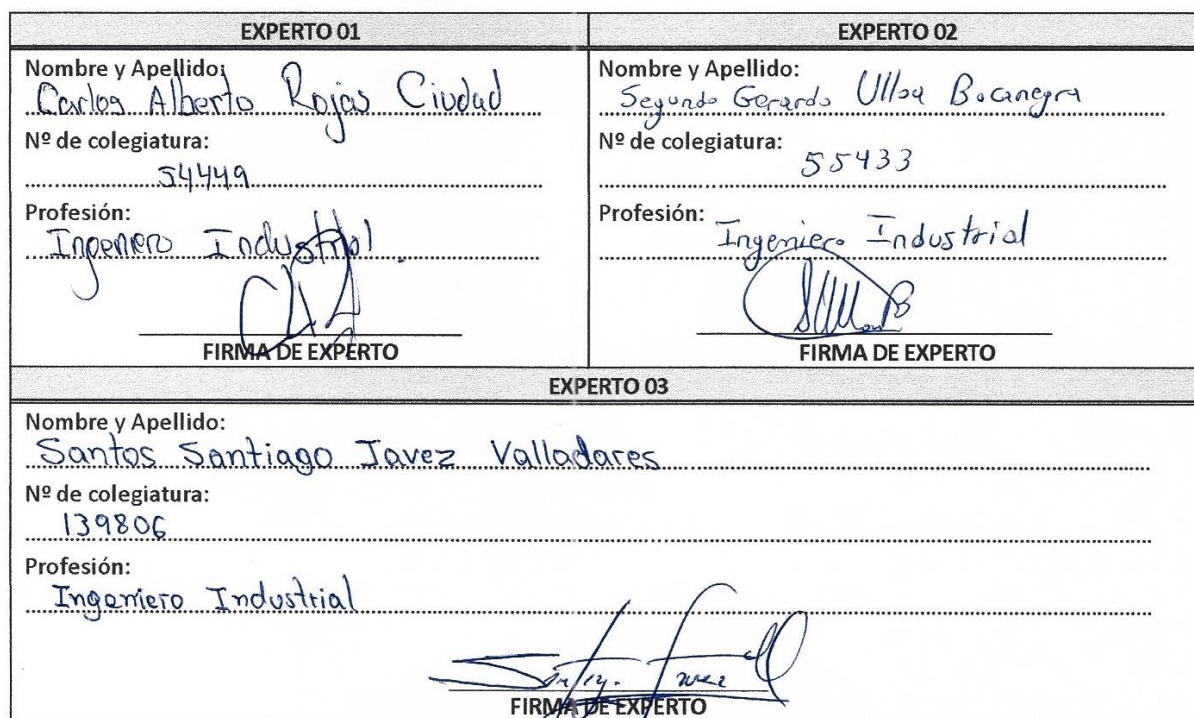 EXPERTO 01
Nombre y Apellido:
Carlos Alberto Rojas Ciudad
Nº de colegiatura:
54449
Profesión:
Ingeniero Industrial
FIRMA DE EXPERTO
EXPERTO 02
Nombre y Apellido:
Segundo Gerardo Ulloa Bocanegra
Nº de colegiatura:
55433
Profesión:
Ingeniero Industrial
FIRMA DE EXPERTO
EXPERTO 03
Nombre y Apellido:
Santos Santiago Javez Valladares
Nº de colegiatura:
139806
Profesión:
Ingeniero Industrial
FIRMA DE EXPERTO